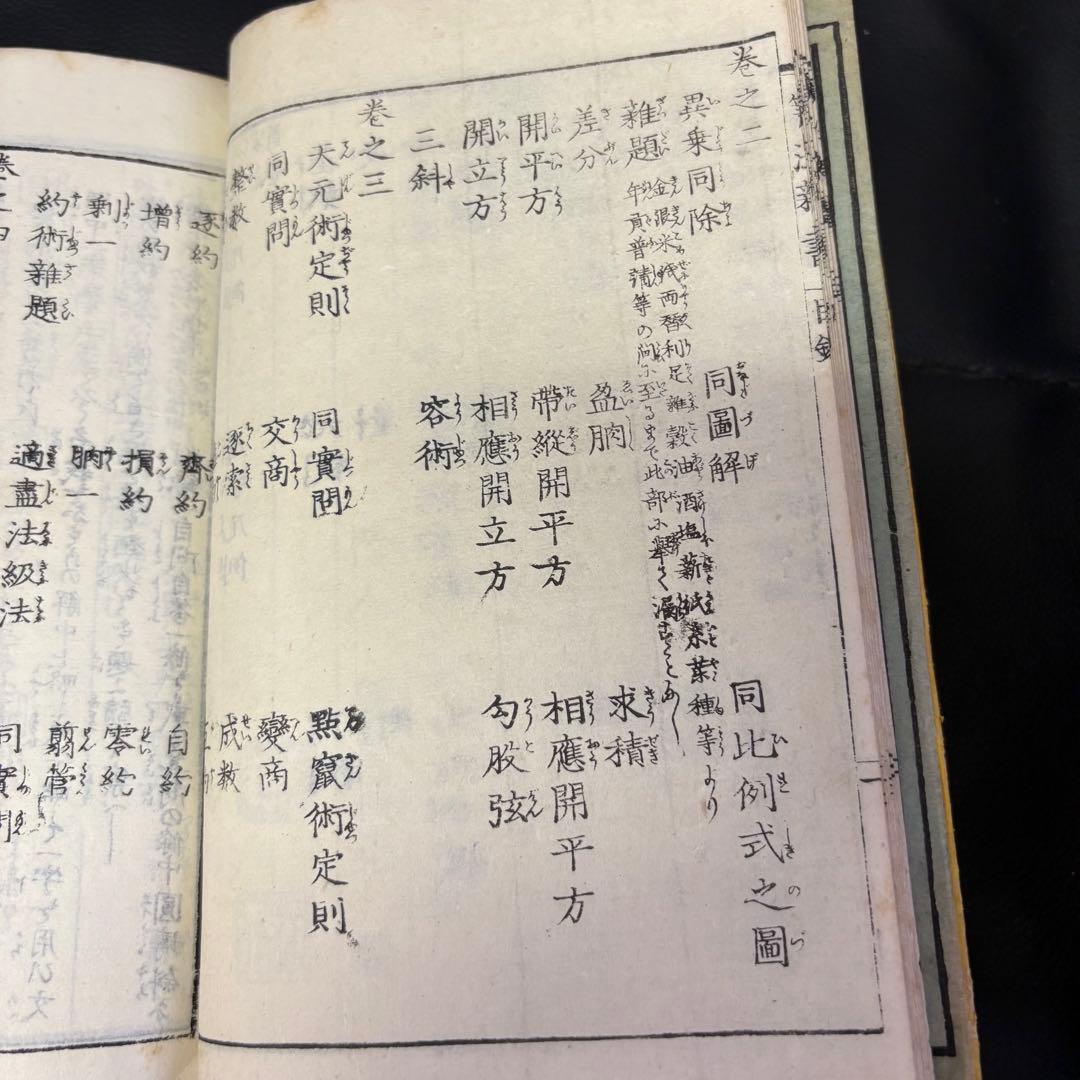 巻之二
異乗同除 同圖解 同比例式之圖
雜題 金銀米銭両替利足雜穀油酒塩薪紙糸葉種等より
年貢普請等の問に至るまで此部に舉て漏すことあし
差分 盈朒 求積
開平方 帶縱開平方 相應開平方
開立方 相應開立方 勾股弦
三斜 容術
巻之三
天元術定則 同實問 點竄術定則
同實問 交商 變商
整数 逐索 成数
逐約 齊約 自約
増約 損約 零約
剰一 朒一 翦管
約術雜題 適盡法級法 同實問
巻之四